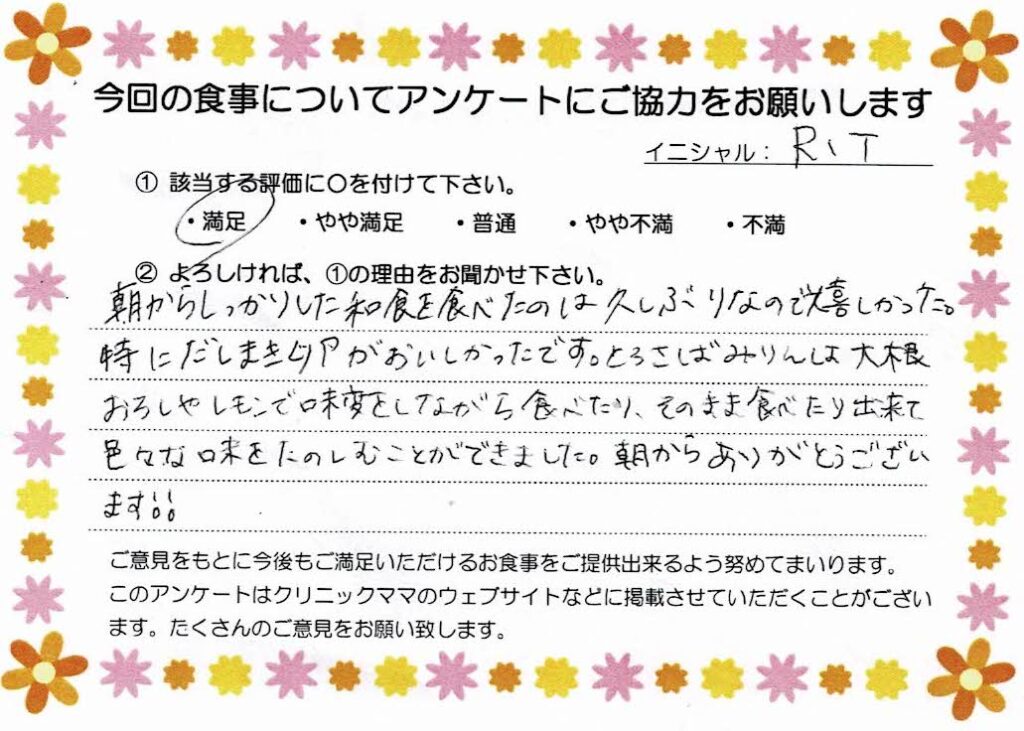 今回の食事についてアンケートにご協力をお願いします
イニシャル： R、T
① 該当する評価に〇を付けて下さい。
・満足 ・やや満足 ・普通 ・やや不満 ・不満
② よろしければ、①の理由をお聞かせ下さい。
朝からしっかりした和食を食べたのは久しぶりなので嬉しかった。
特にだしまき がおいしかったです。とろさばみりんは大根
おろしやレモンで味変をしながら食べたり、そのまま食べたり出来て
色々な味をたのしむことができました。朝からありがとうござい
ます!!
ご意見をもとに今後もご満足いただけるお食事をご提供出来るよう努めてまいります。
このアンケートはクリニックママのウェブサイトなどに掲載させていただくことがござい
ます。たくさんのご意見をお願い致します。